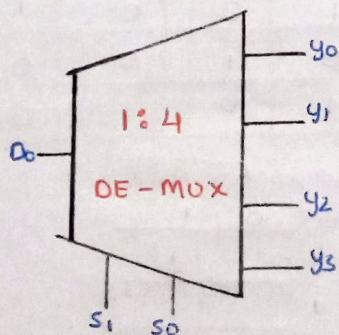 y0
1:4
y1
D0
DE-MUX
y2
y3
S1
S0